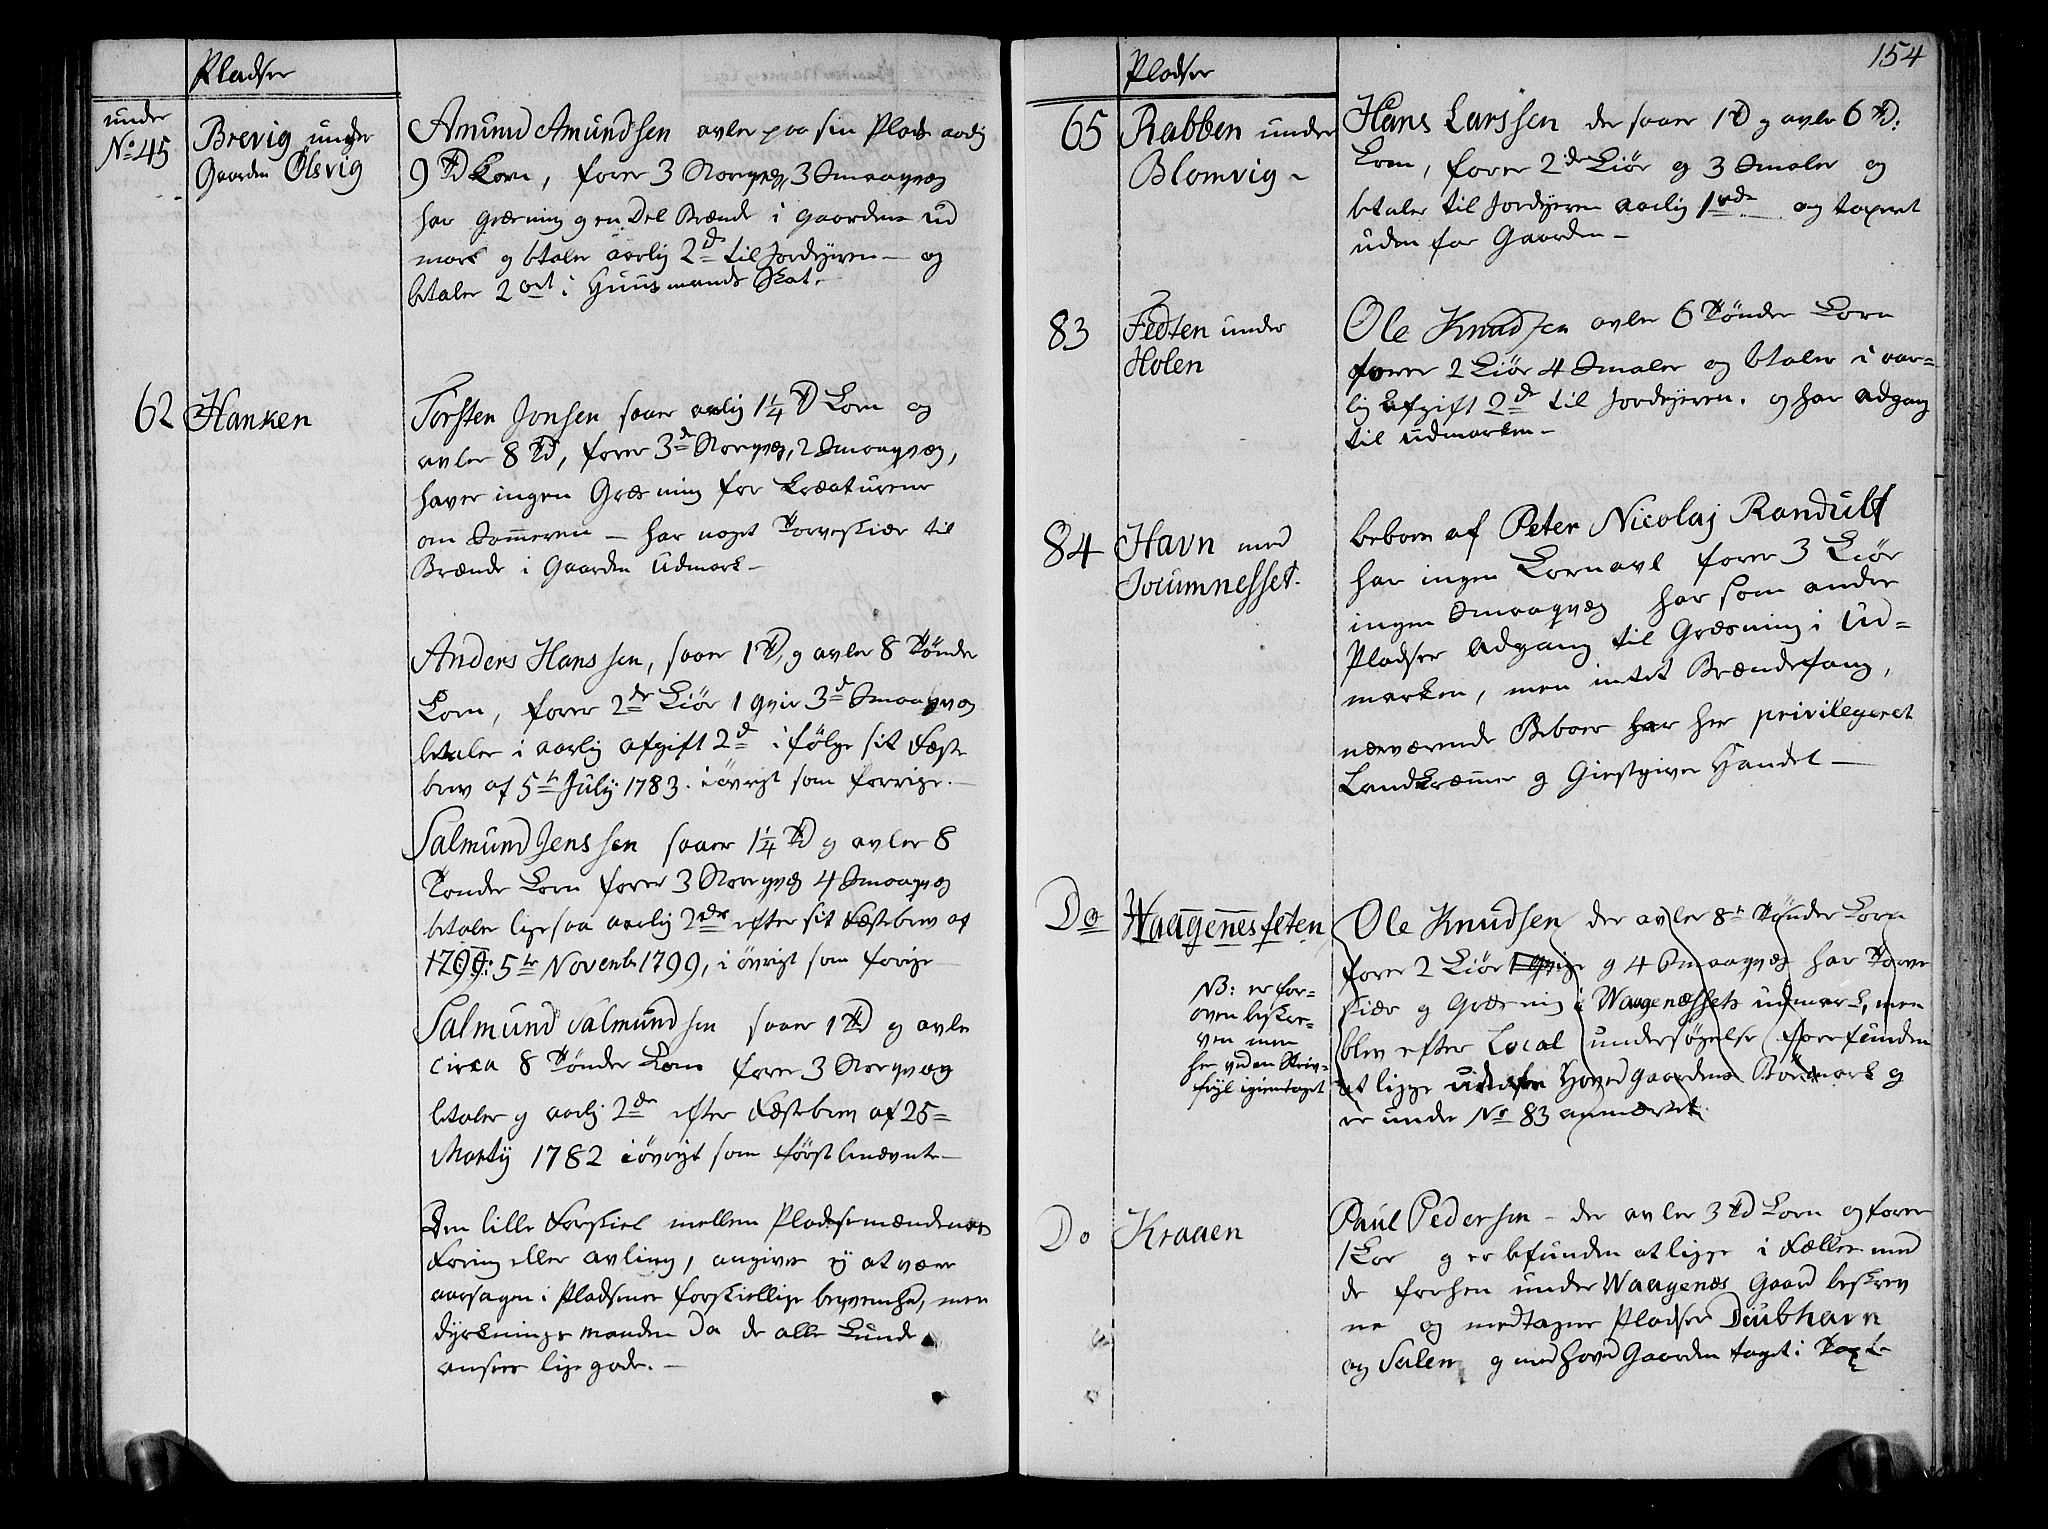 Pladser
under
No 45
Brevig under
Gaarden Ølsvig
Amund Amundsen avler paa sin Plads aarlig
9 Td Korn, foer 3 Storqvæg, 3 Smaaqvæg
har Græsning og en Del Brænde i Gaardens Ud
mark og betaler aarlig 2 rd til Jordejeren – og
betaler 2 ort i Huusmands Skat.
62
Hanken
Torsten Jonsen saaer aarlig 1¼ Td Korn og
avler 8 Td, foer 3 de Storqvæg, 2 Smaaqvæg,
haver ingen Græsning for Kreaturene
om Sommeren – har noget Torveskiær til
Brænde i Gaarden Udmark –
Anders Hanssen, saaer 1 Td, og avler 8 Tønder
Korn, foer 2 de Kiør 1 qvie 3 d Smaaqvæg
betaler i aarlig afgift 2 d i følge sit Fæste
brev af 5 te July 1783. i øvrigt som forrige. –
Salmund Jenssen saaer 1¼ Td og avler 8
Tønder Korn foer 3 Storqvæg 4 Smaaqvæg
betaler ligesaa aarlig 2 rdr efter sit Fæstebrev af
1799: 5 te Novemb 1799, i øvrigt som forige
Salmund Salmundsen saaer 1 Td og avler
circa 8 Tønder Korn foer 3 Storqvæg
betaler og aarlig 2 de efter Fæstebrev af 25 =
Martÿ 1782 i øvrigt som førstbenævnte –
Den lille Forskiel mellem Pladsemændenes
Foring eller avling, angives ej at være
aarsagen i Pladsenes forskiellige beqvemhed, men
dyrknings manden da de alle kunde
ansees lige gode. –
154
Pladser
65
Rabben under
Blomvig –
Hans Larssen der saaer 1 Td og avler 6 Td:
Korn, foer 2 de Kiør og 3 Smaler og
betaler til Jordejeren aarlig 1 rdr og taxeret
uden for Gaarden –
83
Fedten under
Holen
Ole Knudsen avler 6 Tønder Korn
foer 2 Kiør 4 Smaler og betaler i aar=
lig Afgift 2 de til Jordejeren. og har adgang
til Udmarken –
84
Havn med
Jocumnesset.
beboes af Peter Nicolaj Randulf
har ingen Kornavl foer 3 Kiør
ingen Smaaqvæg har som andre
Pladser Adgang til Græsning i Ud=
marken, men intet Brændefang,
nærværende Beboer har her privilegeret
Landkræmmer og Giestgiver Handel –
Do
Waagenesfeten
NB: er for=
oven beskre=
ven men
her ved en Skriv=
feyl igientaget
Ole Knudsen der avler 8 te Tønder Korn
foer 2 Kiør 1 qvige og 4 Smaaqvæg har Torve
skiær og Græsning i Waagenæssets udmark, men
blev efter Local undersøgelse forefunden
at ligge uden for Hoved gaardens Bømark og
er under No 83 anmærket.
Do
Kraaen
Paul Pedersen – der avler 3 Td Korn og foer
1 Koe og er befunden at ligge i Fælles med
de forhen under Waagenæs Gaard beskrev
ne og medtagne Pladser Diubhavn
og Salen og med hoved Gaarden taget i Taxt